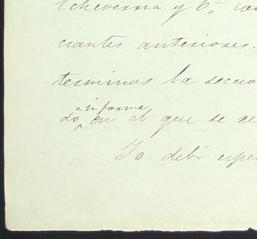 Echeverria y Cª. con
crantes anteriores.
terminos la secua
informe
do en el que se re
Yo debí espe